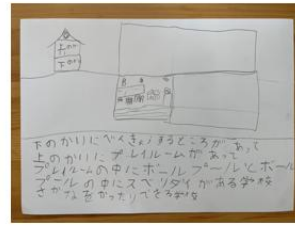 上のかい
下のかい
下のかいにべんきょうするところがあって
上のかいにプレイルームがあって
プレイルームの中にボールプールとボール
プールの中にスベリダイがある学校
さかなをかったりできる学校